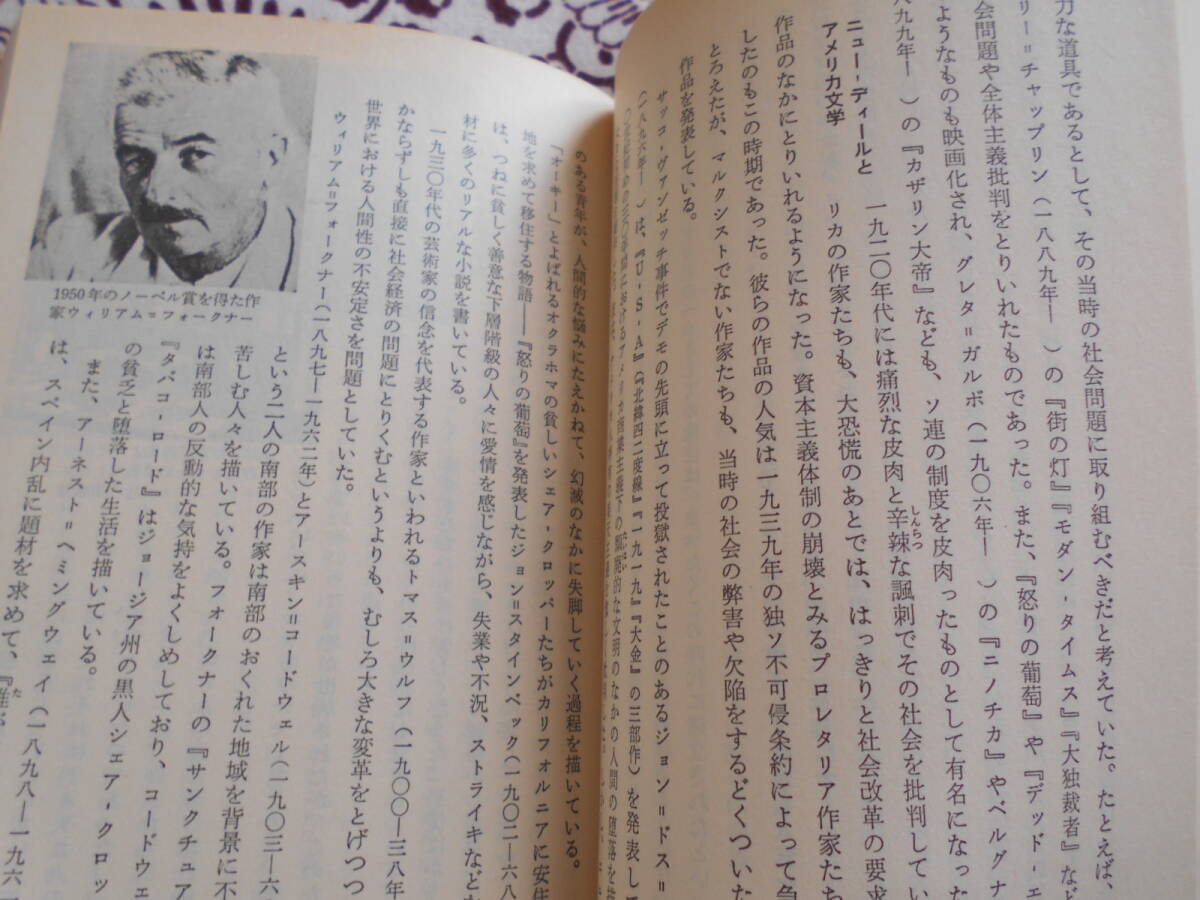 力な道具であるとして、その当時の社会問題に取り組むべきだと考えていた。たとえば、
リー=チャップリン(一八八九年― )の『街の灯』『モダン・タイムス』『大独裁者』など
会問題や全体主義批判をとりいれたものであった。また、『怒りの葡萄』や『デッド・エ
ようなものも映画化され、グレタ=ガルボ(一九〇六年― )の『ニノチカ』やベルグナ
八九九年― )の『カザリン大帝』なども、ソ連の制度を皮肉ったものとして有名になった
ニュー・ディールと
アメリカ文学
一九二〇年代には痛烈な皮肉と辛辣な諷刺でその社会を批判してい
しんらつ
リカの作家たちも、大恐慌のあとでは、はっきりと社会改革の要求
作品のなかにとりいれるようになった。資本主義体制の崩壊とみるプロレタリア作家たち
したのもこの時期であった。彼らの作品の人気は一九三九年の独ソ不可侵条約によって急
とろえたが、マルクシストでない作家たちも、当時の社会の弊害や欠陥をするどくついた
作品を発表している。
サッコ・ヴァンゼッチ事件でデモの先頭に立って投獄されたことのあるジョン=ドス=
(一八九六年― )は、『U・S・A』(『北緯四二度線』『一九一九』『大金』の三部作)を発表して
のある青年が、人間的な悩みにたえかねて、幻滅のなかに失脚していく過程を描いている。
「オーキー」とよばれるオクラホマの貧しいシェア・クロッパーたちがカリフォルニアに安住
地を求めて移住する物語――『怒りの葡萄』を発表したジョン=スタインベック(一九〇二―六八
は、つねに貧しく善意な下層階級の人々に愛情を感じながら、失業や不況、ストライキなどな
材に多くのリアルな小説を書いている。
一九三〇年代の芸術家の信念を代表する作家といわれるトマス=ウルフ(一九〇〇―三八年
かならずしも直接に社会経済の問題にとりくむというよりも、むしろ大きな変革をとげつつ
世界における人間性の不安定さを問題としていた。
ウィリアム=フォークナー(一八九七―一九六二年)とアースキン=コードウェル(一九〇三―
という二人の南部の作家は南部のおくれた地域を背景に不
苦しむ人々を描いている。フォークナーの『サンクチュア
は南部人の反動的な気持をよくしめしており、コードウェ
『タバコ・ロード』はジョージア州の黒人シェア・クロッ
の貧乏と堕落した生活を描いている。
また、アーネスト=ヘミングウェイ(一八九八―一九六
は、スペイン内乱に題材を求めて、『誰が
た
1950年のノーベル賞を得た作
家ウィリアム=フォークナー